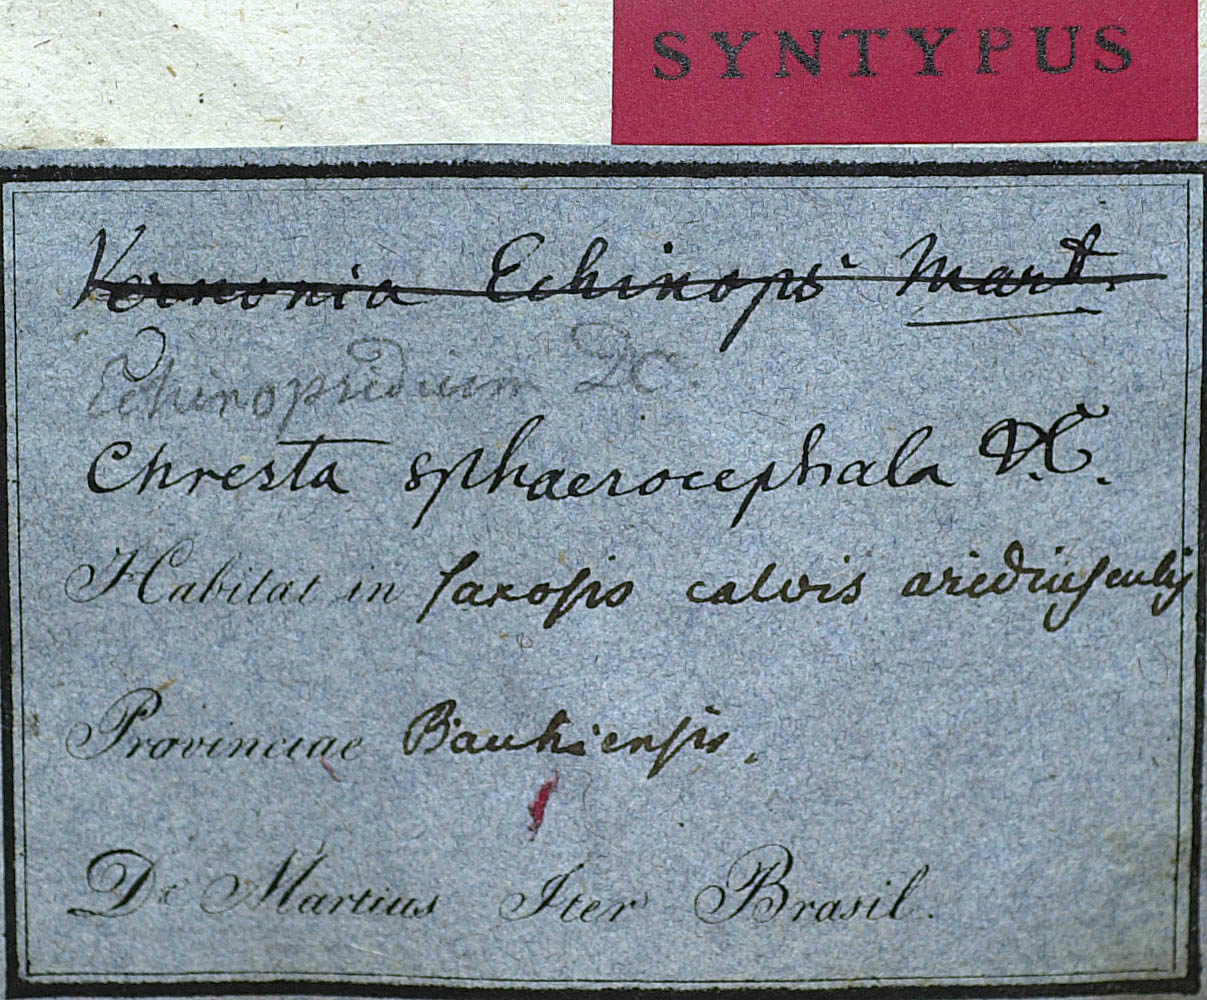 SYNTYPUS
Vernonia Echinops Mart.
Echinopsidium DC.
Chresta sphaerocephala DC.
Habitat in saxosis calvis aridiusculis
Provinciae Bauhiensis.
Dr Martius Iter Brasil.